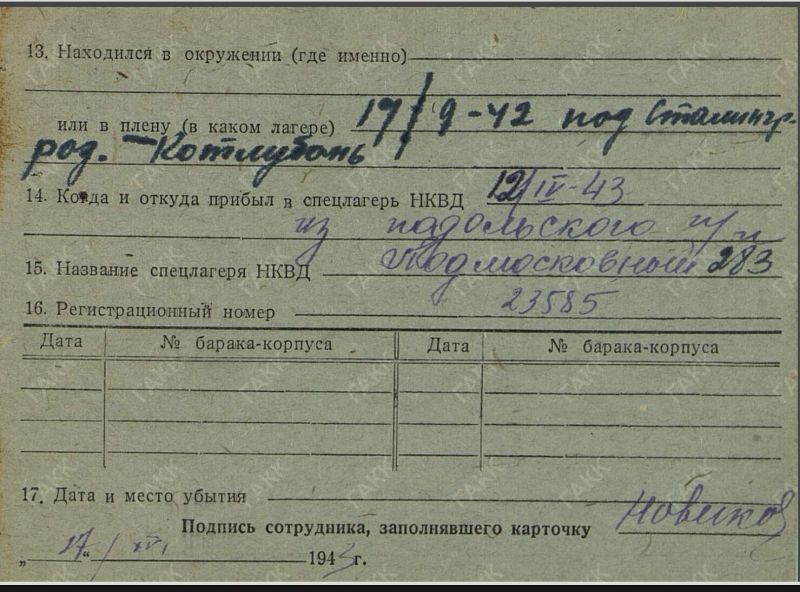 13. Находился в окружении (где именно)
или в плену (в каком лагере) 17/9-42 под Сталингр-
род. - Котлубань
14. Когда и откуда прибыл в спецлагерь НКВД 12/IV-43
из подольского п/п
15. Название спецлагеря НКВД Подмосковный 283
16. Регистрационный номер 23585
Дата № барака-корпуса Дата № барака-корпуса
17. Дата и место убытия
Подпись сотрудника, заполнявшего карточку Новиков
„17“/ 1943 г.